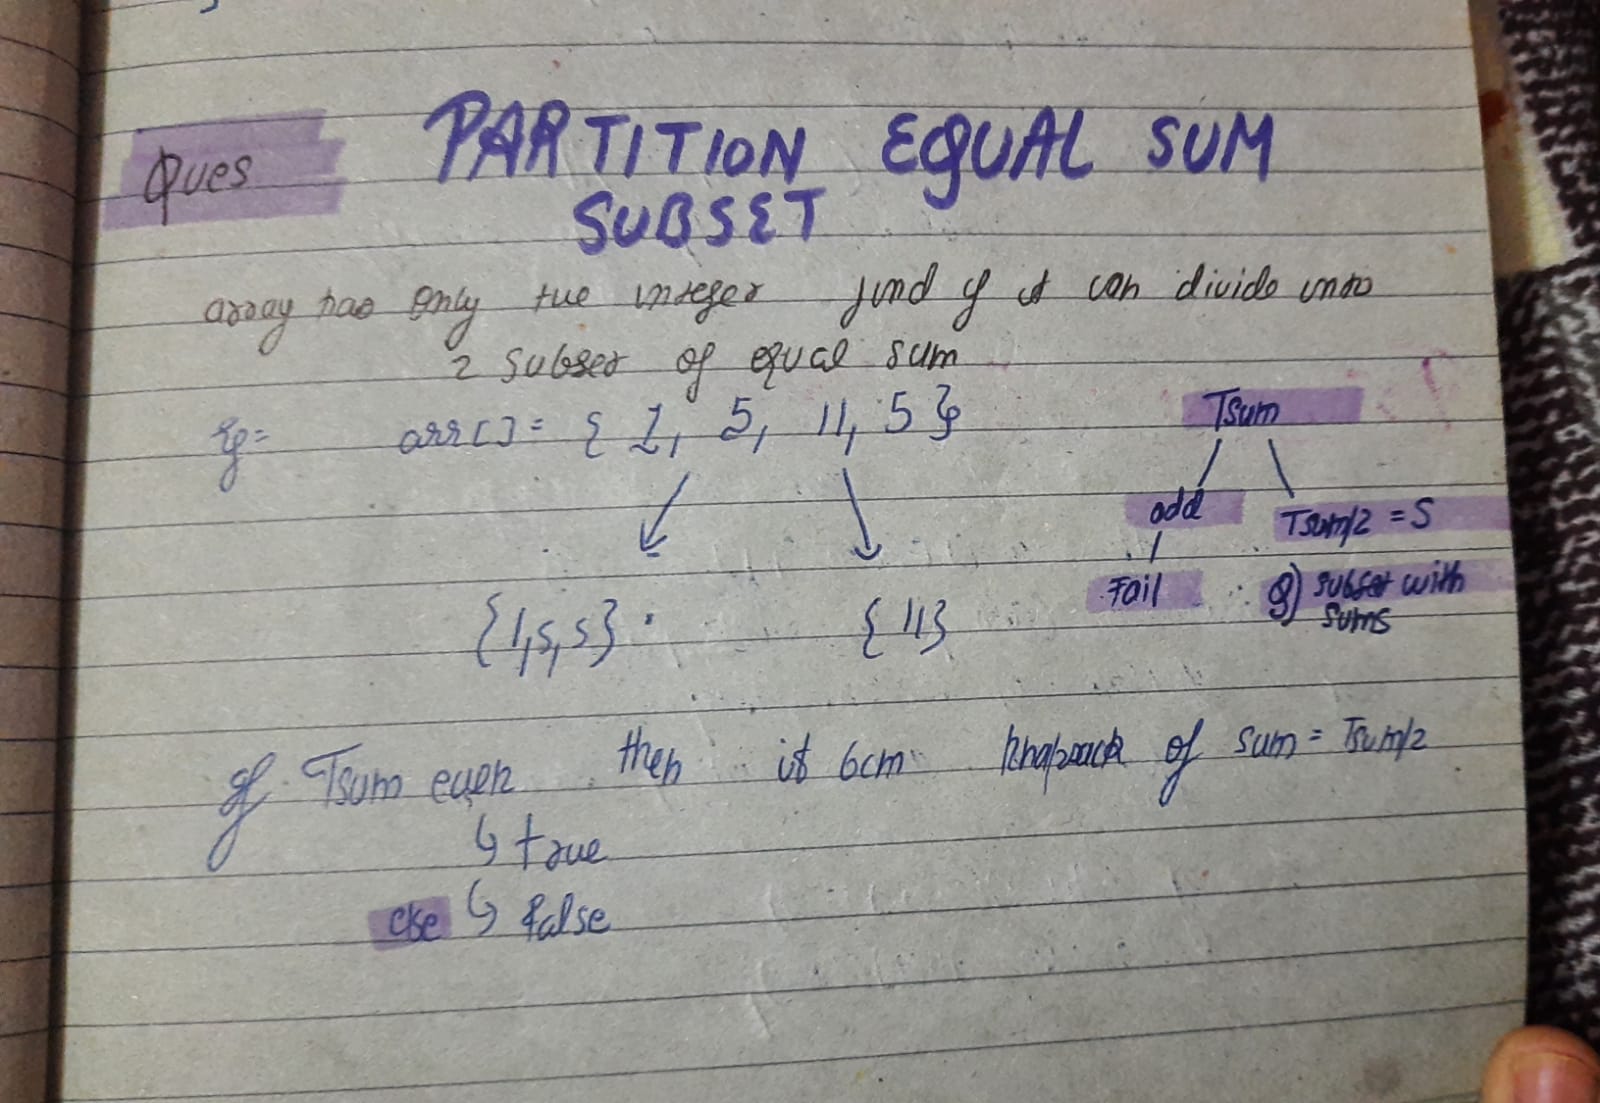 Ques
PARTITION EQUAL SUM
SUBSET
array has only +ue integer find if it can divide into
2 subset of equal sum
Eg= arr[] = { 1, 5, 11, 5 }
Tsum
odd
Tsum/2 = S
Fail
Q) subset with
sums
{1,5,5}
{11}
If Tsum even then if bcm knapsack of sum = Tsum/2
↳ true
else ↳ false